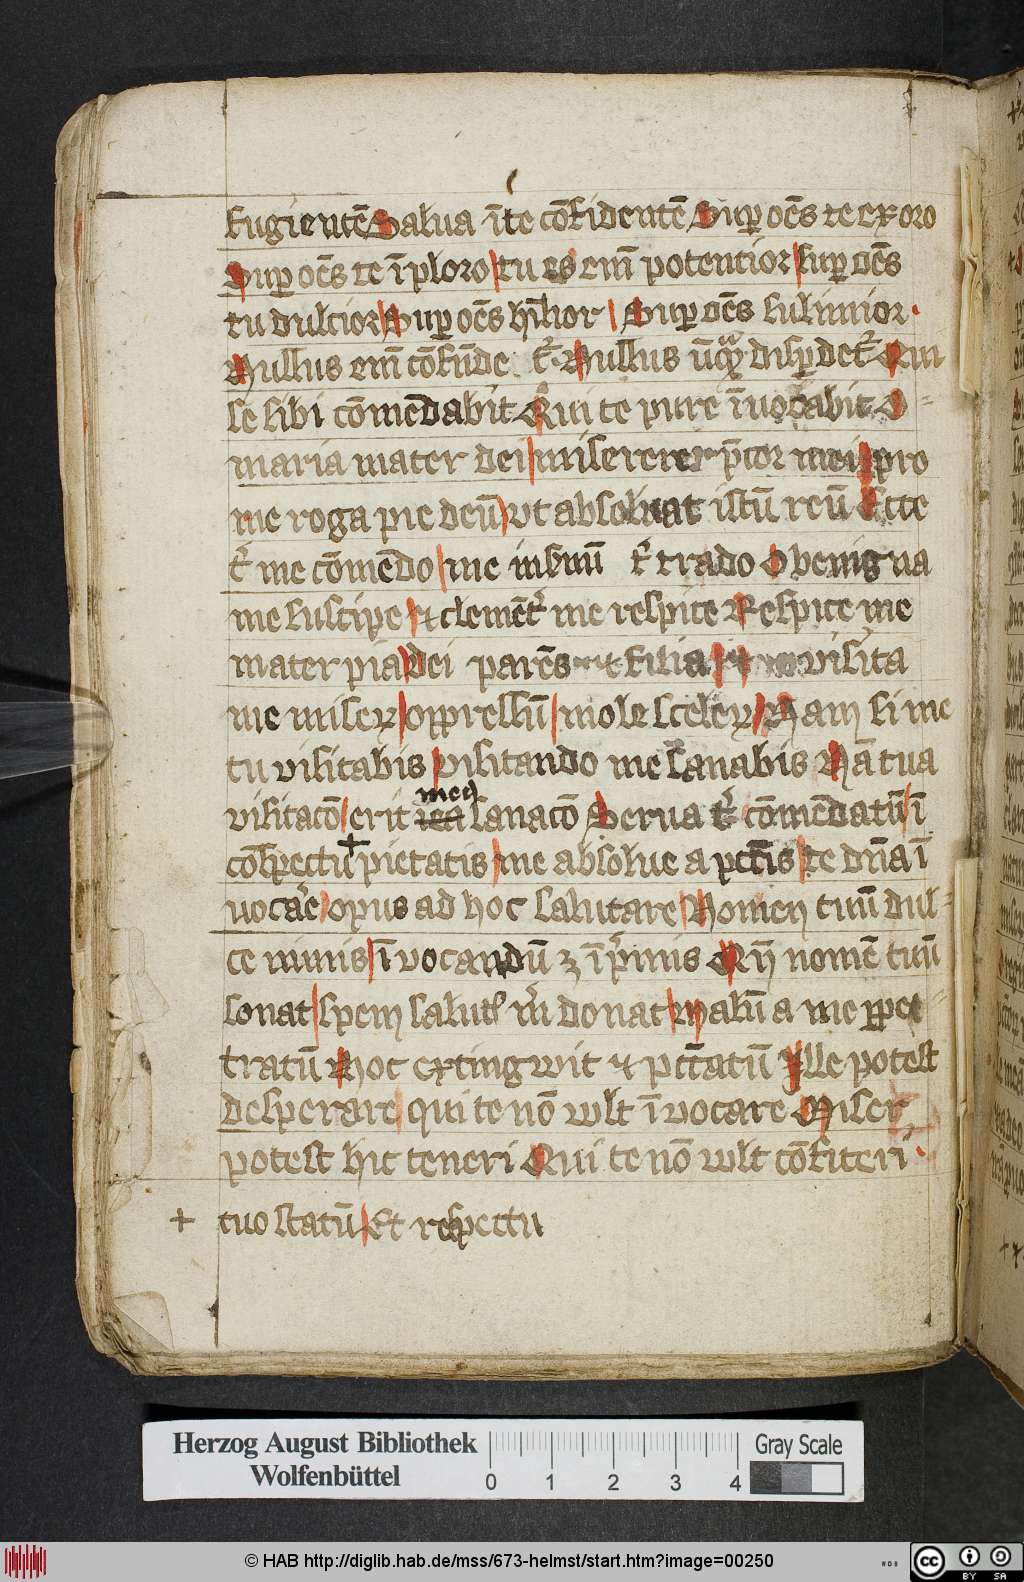 fugientē Salua ī te cōfidentē Sup oēs te exoro
Sup oēs te īploro tu es em̄ potentior sup oēs
tu dulcior Sup oēs hīlior Sup oēs sulimior
Nullus em̄ cōfūde t᷑ Nullus disp det᷑ Qui
se sibi cōmēdabit Qui te pure īuocabit O
maria mater dei miserere p̄cor mei pro
me roga pie deū vt absoluat istū reū Ecce
t᷑ me cōmēdo me insinū t᷑ trado O benigna
me suscipe et clemēt᷑ me respice Respice me
mater pia dei parēs et filia visita
me miserꝝ oppressū mole scelerꝝ Nam si me
tu visitabis visitando me sanabis Nā tua
visitacō erit mea sanacō Serua t᷑ cōmēdatū ī
cōspectu + pietatis me absolue a pctīs te dn̄a ī
uocar̄e opus ad hoc salutare Nomen tuū dul=
ce nimis ī vocandū ⁊ īp̄mis Qn̄ nomē tuū
sonat spem salut᷑ m̄ donat Malū a me ꝑpet
tratū Hoc extingwit et pctatū Ille potest
desperare qui te nō wlt ī vocare Miser
potest hic teneri Qui te nō wlt cōfiteri
+ tuo statū Et respectu
Herzog August Bibliothek
Wolfenbüttel
0 1 2 3 4
Gray Scale
© HAB http://diglib.hab.de/mss/673-helmst/start.htm?image=00250
cc BY SA